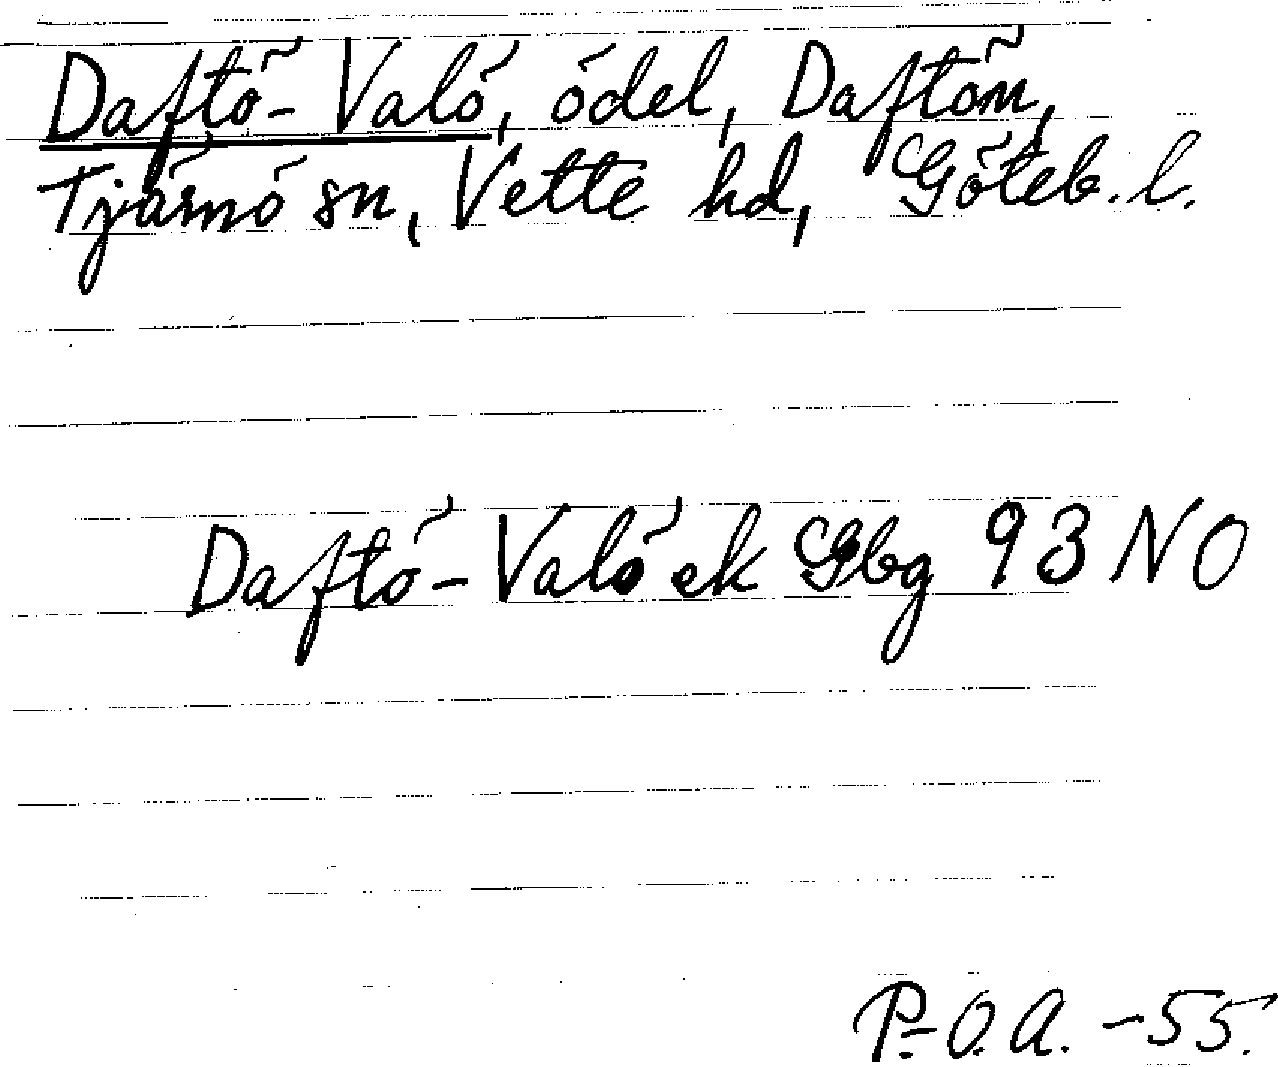 Daftö-Valö, ödel, Daftön,
Tjärnö sn, Vette hd, Göteb. l.
Daftö-Valö ek Gbg 93 NO
P.-O.A. -55.